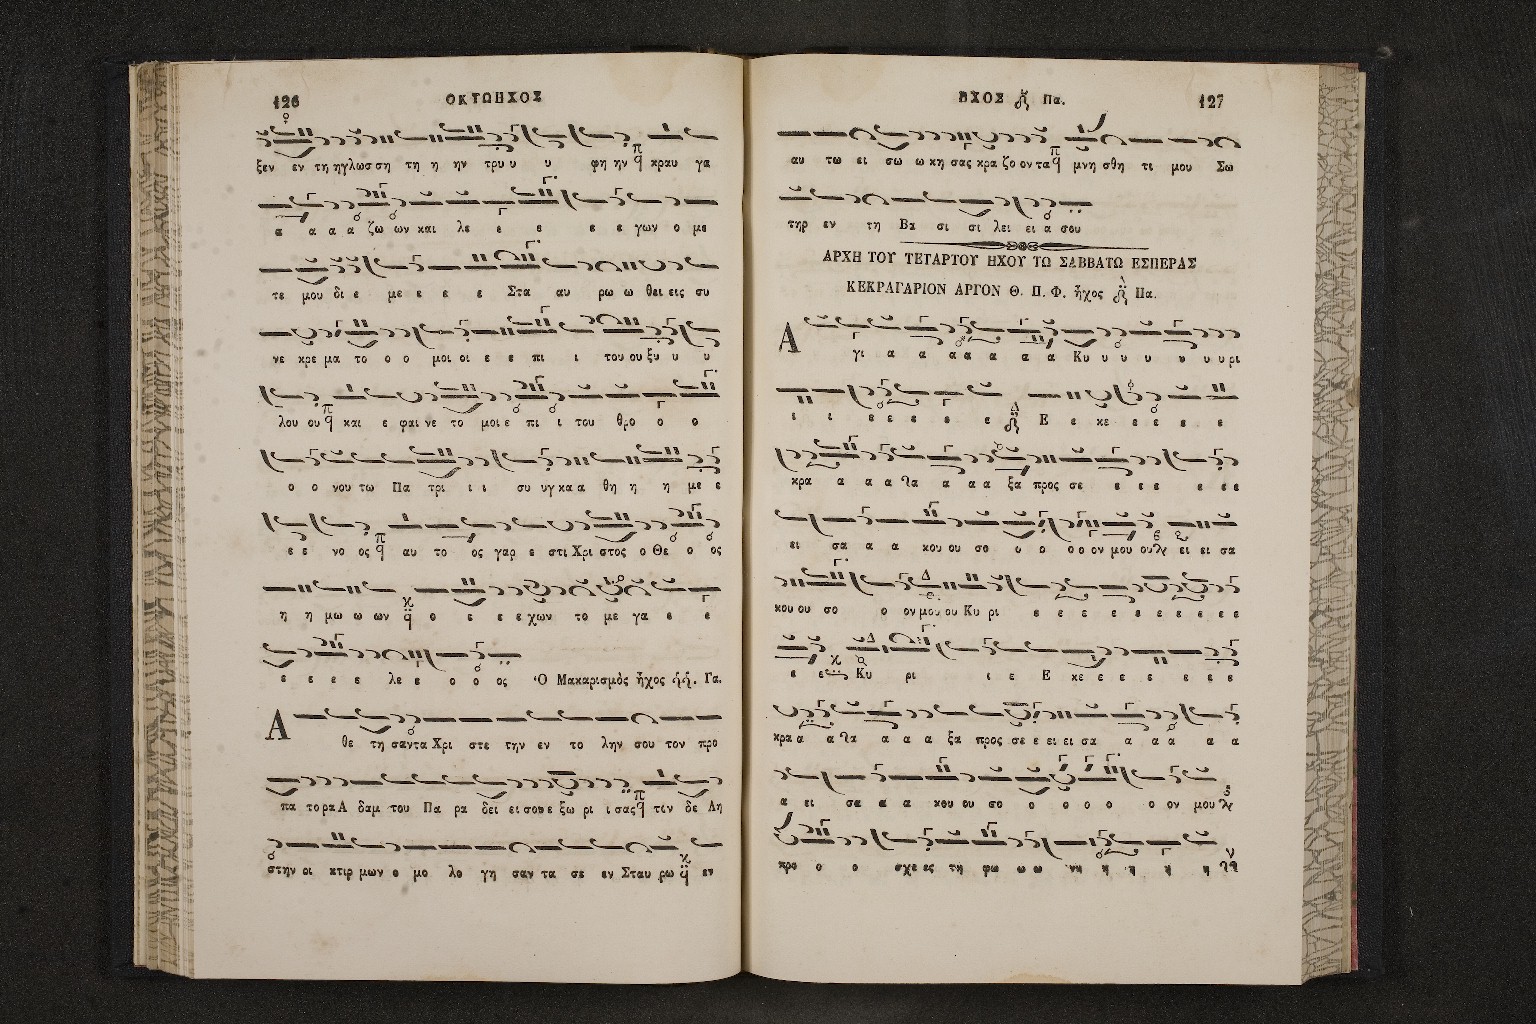 126
ΟΚΤΩΗΧΟΣ
ξεν εν τη η γλωσ ση τη η ην τρυ υ υ φη ην κραυ γα
α α α α ζω ων και λε ε ε ε ε γων ο με
τε μου δι ε με ε ε ε Στα αυ ρω ω θει εις συ
νε κρε μα το ο ο μοι οι ε ε πι ι του ου ξυ υ υ
λου ου και ε φαι νε το μοι ε πι ι του θρο ο ο
ο ο νου τω Πα τρι ι ι συ υγ κα α θη η η με ε
ε ε νο ος αυ το ος γαρ ε στι Χρι στος ο Θε ο ος
η η μω ω ων ο ε ε ε χων το με γα ε ε
ε ε ε ε λε ε ο ο ος Ὁ Μακαρισμὸς ἦχος Γα.
Α θε τη σαντα Χρι στε την εν το λην σου τον προ
πα το ρα Α δαμ του Πα ρα δει ει σου ε ξω ρι ι σας τὶν δε Λη
στην οι κτιρ μων ο μο λο γη σαν τα σε εν Σταυ ρω εν
ΗΧΟΣ Πα.
127
αυ τω ει σω ω κη σας κρα ζο ον τα μνη σθη τι μου Σω
τηρ εν τη Βα σι σι λει ει α σου
ΑΡΧΗ ΤΟΥ ΤΕΤΑΡΤΟΥ ΗΧΟΥ ΤΩ ΣΑΒΒΑΤΩ ΕΣΠΕΡΑΣ
ΚΕΚΡΑΓΑΡΙΟΝ ΑΡΓΟΝ Θ. Π. Φ. ἦχος Πα.
Α γι α α α α α α α Κυ υ υ υ υ υ υ ρι
ι ι ε ε ε ε ε Ε ε κε ε ε ε ε
κρα α α α α α α ξα προς σε ε ε ε ε ε ε
ει σα α α κου ου σο ο ο ο ο ον μου ου ει ει σα
κου ου σο ο ον μου ου Κυ ρι ε ε ε ε ε ε ε ε ε
ε ε Κυ ρι ι ε Ε κε ε ε ε ε ε ε
κρα α α α α α ξα προς σε ε ει ει σα α α α α α
α ει σα α α κου ου σο ο ο ο ο ο ον μου
προ ο ο σχε ες τη φω ω ω νη η η η η